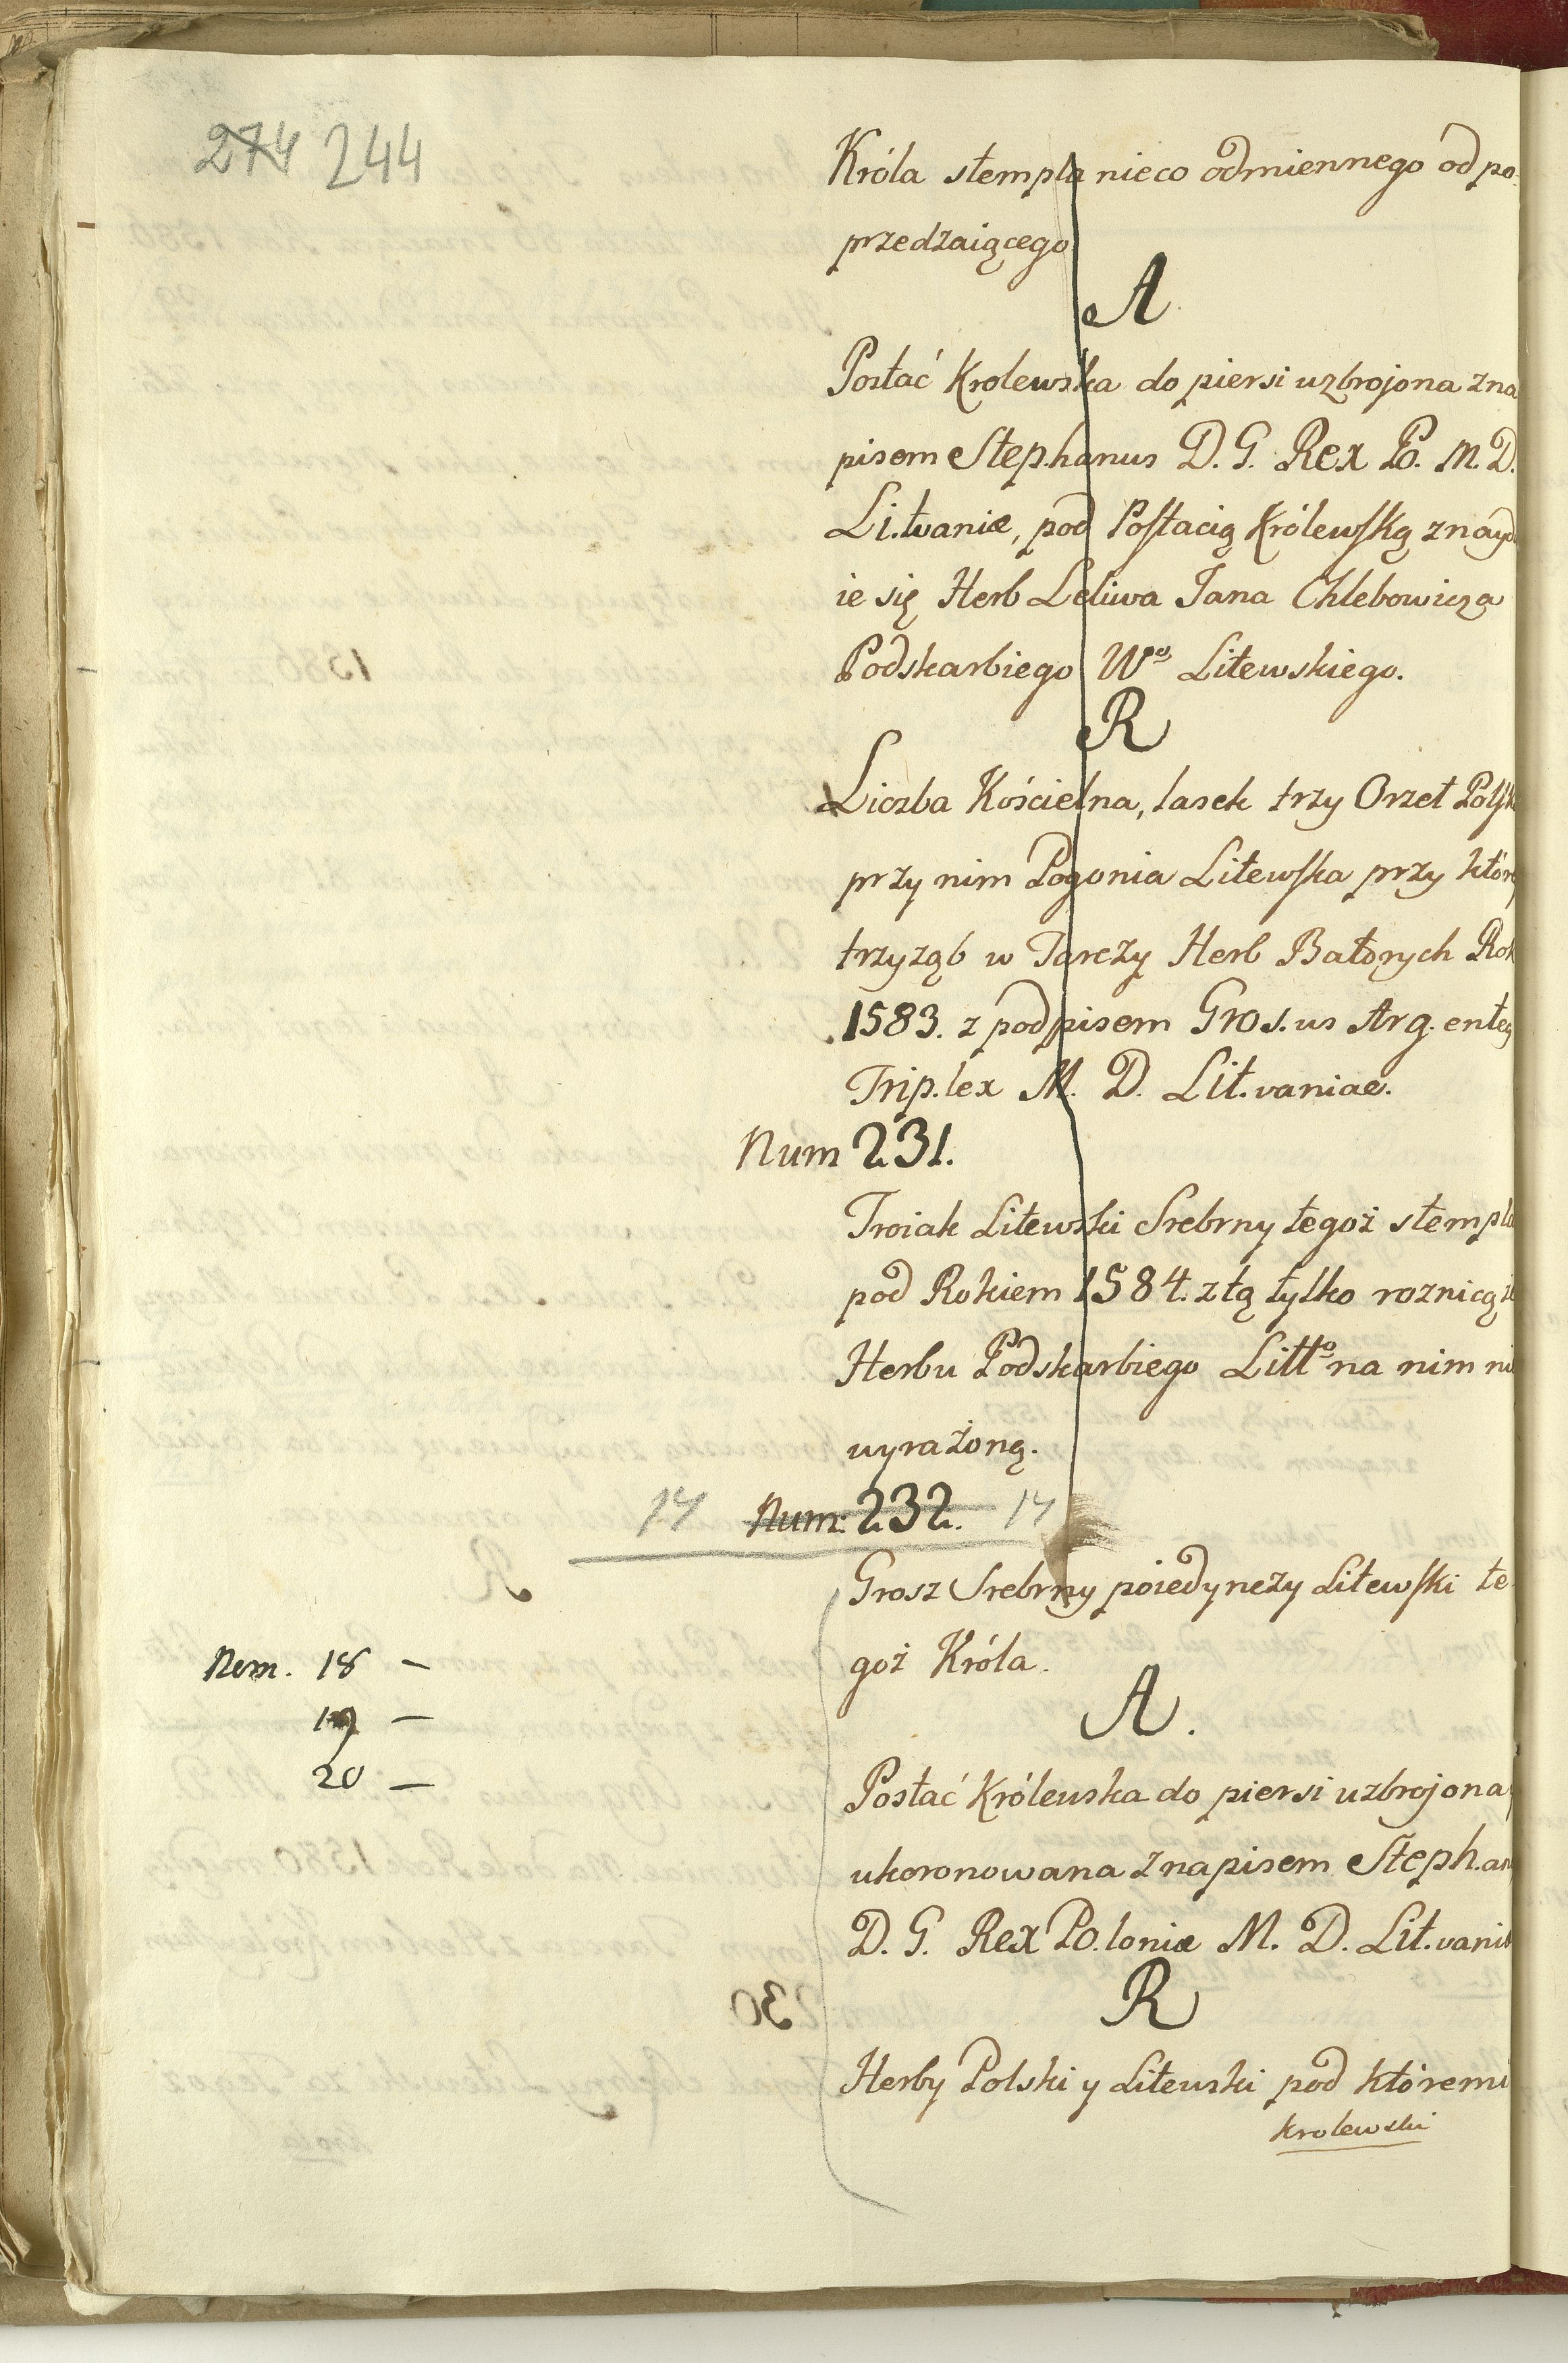 274 244
Króla stempla nieco odmiennego od po-
przedzaiącego
A
Postać Krolewska do piersi uzbrojona z na
pisem Step.hanus D. G. Rex Po. M. D.
Li.tvaniæ, pod Postacią Królewską znayd
ie się Herb Leliwa Jana Chlebowicza
Podskarbiego Wo Litewskiego.
R
Liczba Kościelna, lasek trzy Orzeł Polsk
przy nim Pogonia Litewska przy któr
trzyząb w Tarczy Herb Batorych Rok
1583. z podpisem Gros.us Arg.enteg
Trip.lex M. D. Lit.vaniae.
Num 231.
Troiak Litewski Srebrny tegoż stempla
pod Rokiem 1584. z tą tylko roznicą że
Herbu Podskarbiego Litto na nim ni
wyrażoną.
14 Num: 232. 14
Grosz Srebrny poiedynczy Litewski te
goż Króla.
Nem. 18 –
19 –
20 –
A.
Postać Królewska do piersi uzbrojona
ukoronowana z napisem Steph.an
D. G. Rex Po.loniæ M. D. Lit.vaniæ
R
Herby Polski y Litewski pod któremi
krolewski